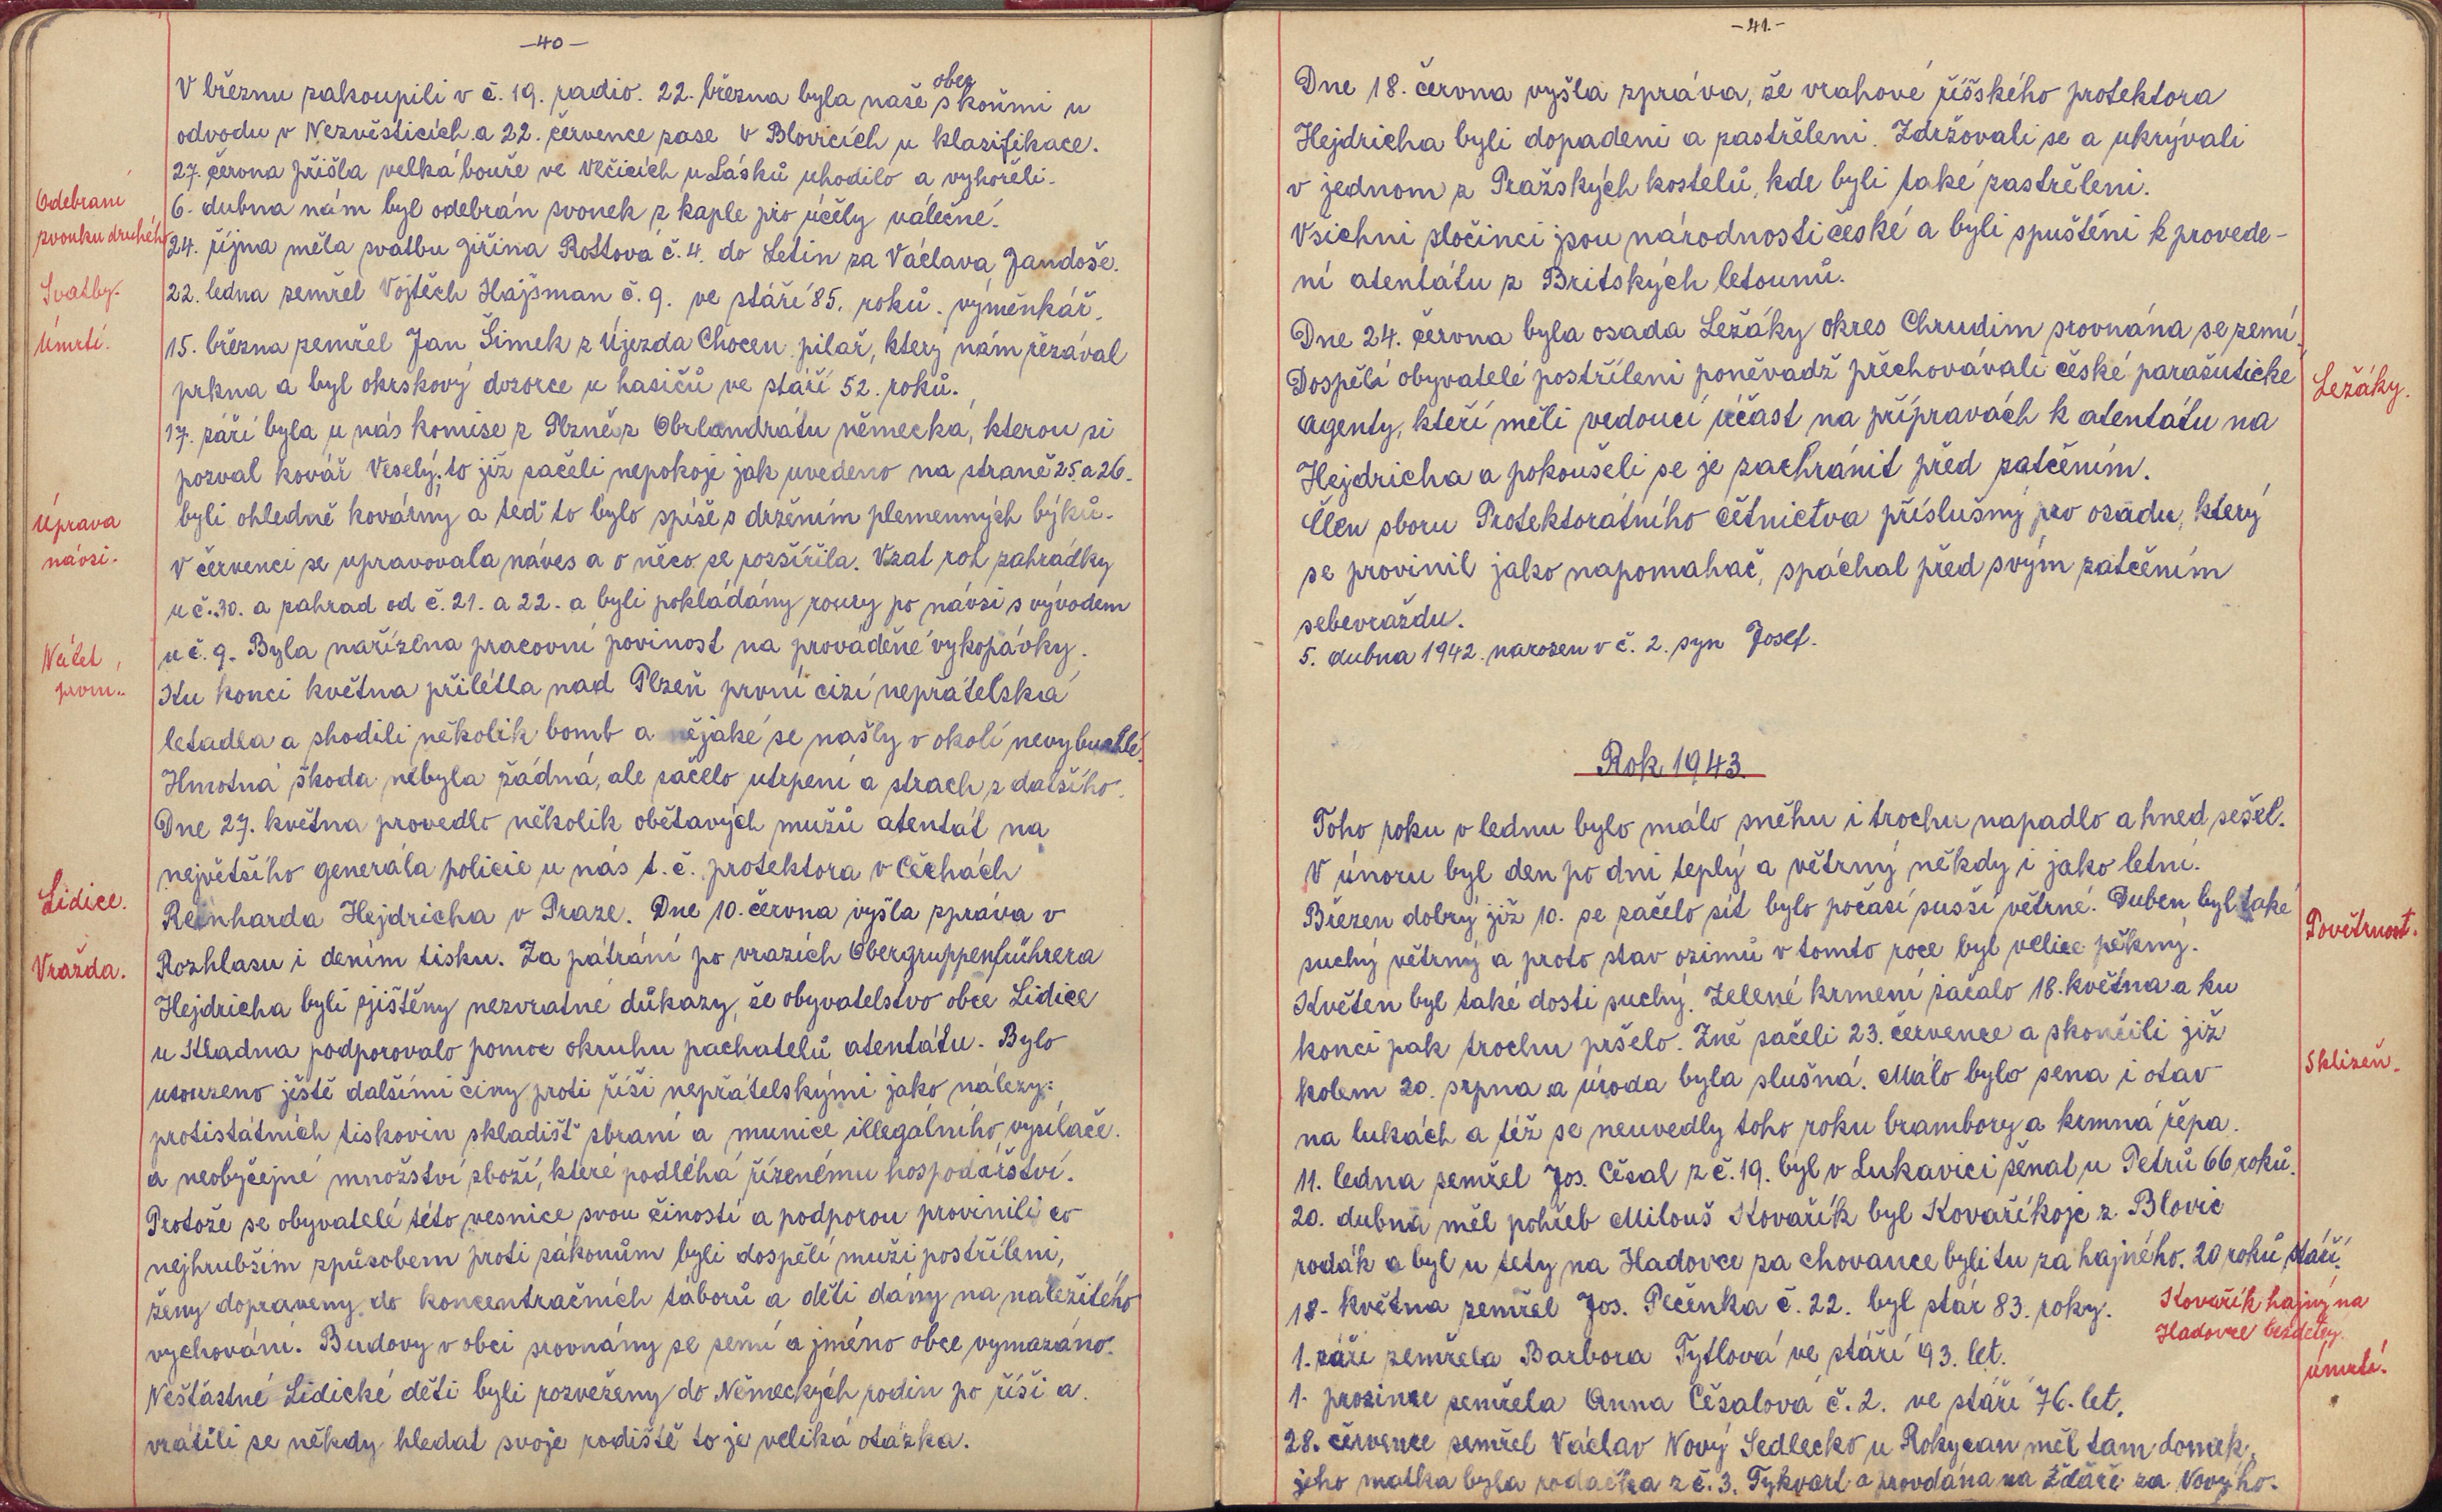 -40-
V březnu zakoupili v č. 19. radio. 22. března byla naše obec s koňmi u
odvodu v Nezvěsticích a 22. července zase v Blovicích u klasifikace.
27. června přišla velká bouře ve Vlčicích u Lásků uhodilo a vyhořeli.
Odebrání
zvonku druhého
6. dubna nám byl odebrán zvonek z kaple pro účely válečné.
24. října měla svatbu Jiřina Rottová č. 4. do Letin za Václava Jandoše.
Svatby.
22. ledna zemřel Vojtěch Hajšman č. 9. ve stáří 85. roků. výměnkář.
Úmrtí.
15. března zemřel Jan Šimek z Újezda Chocen. pilař, který nám řezával
prkna a byl okrskový dozorce u hasičů ve stáří 52. roků.
17. září byla u nás komise z Plzně z Obrlandrátu německá, kterou si
pozval kovář Veselý. to již začeli nepokoje jak uvedeno na straně 25. a 26.
Úprava
návsi.
byli ohledně kovárny a teď to bylo spíše s držením plemenných býků.
V červenci se upravovala náves a o něco se rozšířila. Vzat roh zahrádky
u č. 30. a zahrad od č. 21. a 22. a byli pokládány roury po návsi s vývodem
u č. 9. Byla nařízena pracovní povinost na prováděné vykopávky.
Nálet
prvn..
Ku konci května přilétla nad Plzeň první cizí nepřátelská
letadla a shodili několik bomb a nějaké se našly v okolí nevybuchlé.
Hmotná škoda nebyla žádná, ale začelo utrpení a strach z dalšího.
Dne 27. května provedlo několik obětavých mužů atentát na
největšího generála policie u nás t. č. protektora v Čechách
Lidice.
Reinharda Hejdricha v Praze. Dne 10. června vyšla zpráva v
Vražda.
Rozhlasu i dením tisku. Za pátrání po vrazích Obergruppenführera
Hejdricha byli zjištěny nezvratné důkazy, že obyvatelstvo obce Lidice
u Kladna podporovalo pomoc okruhu pachatelů atentátu. Bylo
usouzeno ještě dalšími činy proti říši nepřátelskými jako nálezy:
protistátních tiskovin skladišť zbraní a munice illegálního vysílače.
a neobyčejné množství zboží, které podléhá řízenému hospodářství.
Protože se obyvatelé této vesnice svou čiností a podporou provinili co
nejhrubším způsobem proti zákonům byli dospělí muži postříleni,
ženy dopraveny do koncentračních táborů a děti dány na náležitého
vychování. Budovy v obci srovnány se zemí a jméno obce vymazáno.
Nešťastné Lidické děti byli rozveženy do Německých rodin po říši a
vrátili se někdy hledat svoje rodiště to je veliká otázka.
-41.-
Dne 18. června vyšla zpráva, že vrahové říšského protektora
Hejdricha byli dopadeni a zastřeleni. Zdržovali se a ukrývali
v jednom z Pražských kostelů, kde byli také zastřeleni.
Všichni zločinci jsou národnosti české a byli spuštěni k provede-
ní atentátu z Britských letounů.
Dne 24. června byla osada Ležáky okres Chrudim srovnána se zemí.
Dospělí obyvatelé postříleni poněvadž přechovávali české parašutické
Ležáky.
agenty, kteří měli vedoucí účast na přípravách k atentátu na
Hejdricha a pokoušeli se je zachránit před zatčením.
Člen sboru Protektorátního četnictva příslušný pro osadu, který
se provinil jako napomahač, spáchal před svým zatčením
sebevraždu.
5. dubna 1942. narozen v č. 2. syn Josef.
Rok 1943.
Toho roku v lednu bylo málo sněhu i trochu napadlo a hned sešel.
V únoru byl den po dni teplý a větrný někdy i jako letní.
Březen dobrý již 10. se začelo sít bylo počasí sušší větrné. Duben byl také
Povětrnost.
suchý větrný a proto stav ozimů v tomto roce byl velice pěkný.
Květen byl také dosti suchý. Zelené krmení začalo 18. května a ku
konci pak trochu pršelo. Žně začeli 23. července a skončili již
Sklizeň.
kolem 20. srpna a úroda byla slušná. Málo bylo sena i otav
na lukách a též se neuvedly toho roku brambory a krmná řepa.
11. ledna zemřel Jos. Cěsal z č. 19. byl v Lukavici ženat u Petrů 66 roků.
20. dubna měl pohřeb Milouš Kovařík byl Kovaříkojc z Blovic
rodák a byl u tety na Hadovce za chovance byli tu za hajného. 20 roků stáří.
18. května zemřel Jos. Pečenka č. 22. byl stár 83. roky.
Kovařík hajný na
Hadovce bezdětný.
1. září zemřela Barbora Tytlová ve stáří 93. let.
úmrtí.
1. prosince zemřela Anna Cěsalová č. 2. ve stáří 76. let.
28. července zemřel Václav Nový Sedlecko u Rokycan měl tam domek,
jeho matka byla rodačka z č. 3. Tykvart a provdána na Ždáře za Novýho.